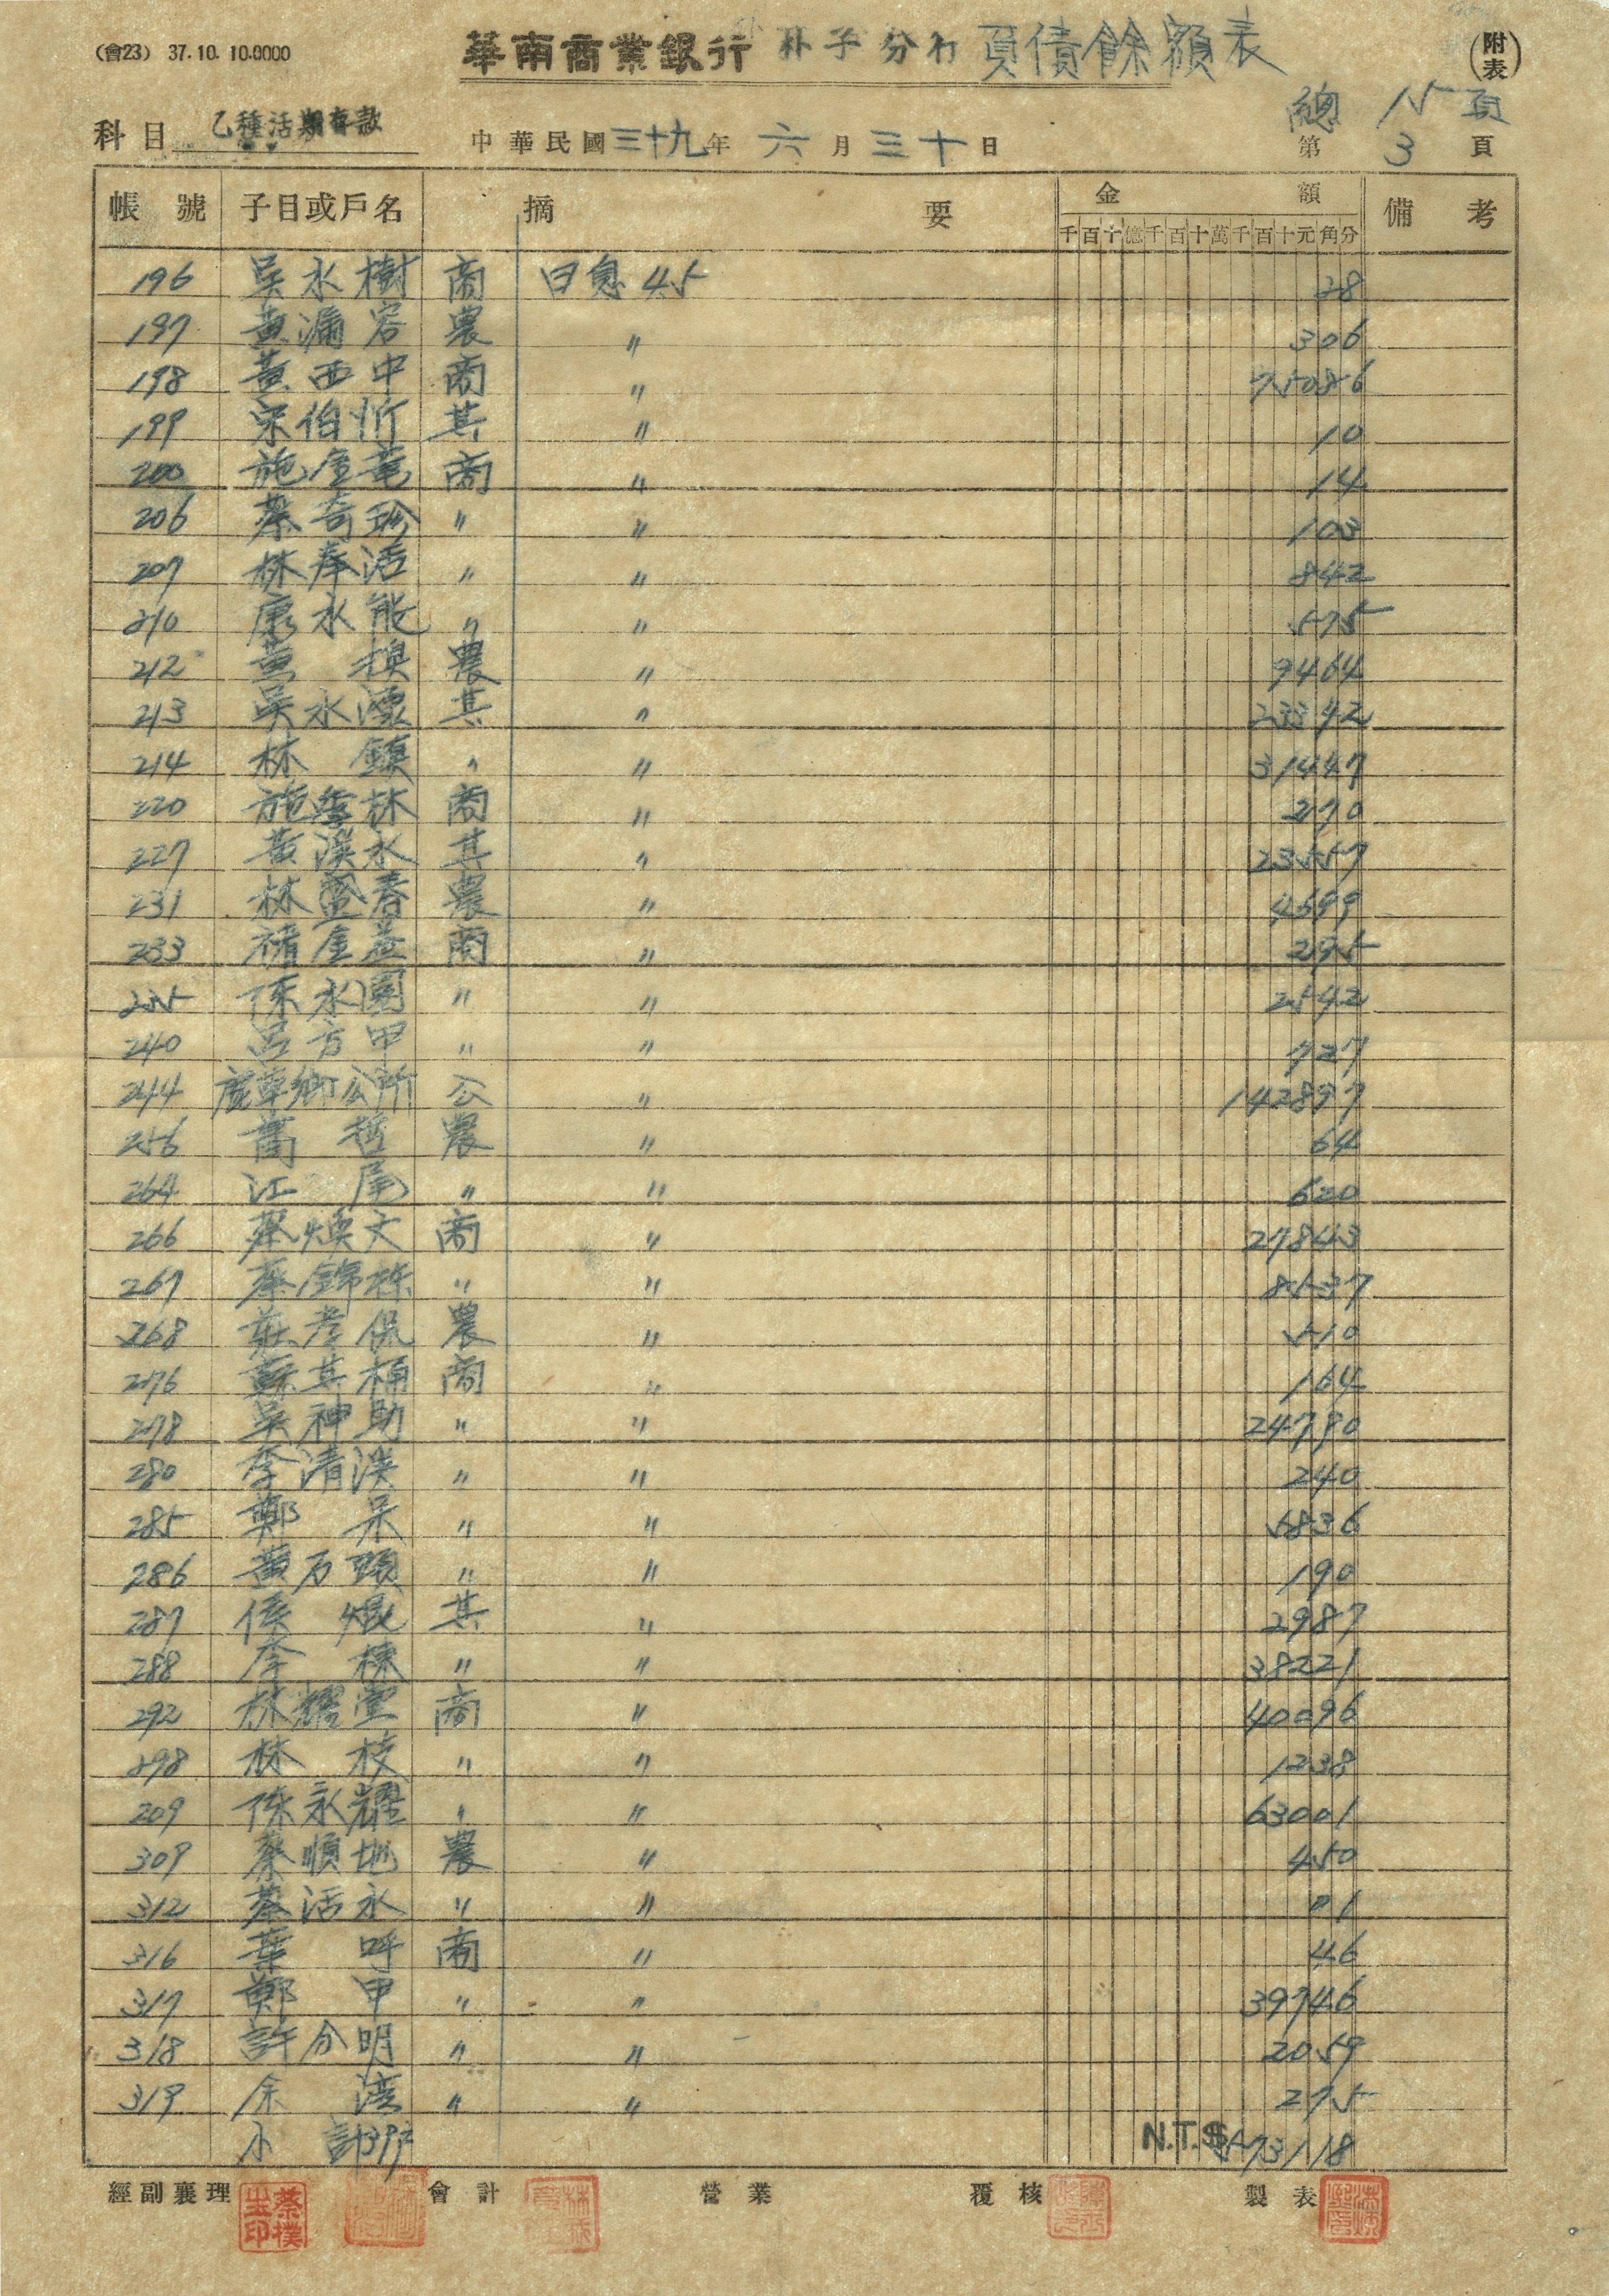 (會23) 37.10.10.0000
華南商業銀行 朴子分行 負債餘額表
(附表)
總 15 頁
科目 乙種活期存款 中華民國三十九年 六月 三十日 第 3 頁
帳號 子目或戶名 摘要 金額 備考
千百十億千百十萬千百十元角分
196 吳水樹 商 日息 45 28
197 黃漏容 農 〃 306
198 黃西中 商 〃 75086
199 宋伯忻 其 〃 10
200 施金菴 商 〃 14
206 蔡奇珍 〃 〃 103
207 林奉活 〃 〃 842
210 康水能 〃 〃 575
212 黃 農 〃 9464
213 吳水漂 其 〃 23342
214 林鎮 〃 〃 31447
220 施季林 商 〃 270
227 黃漢水 其 〃 23557
231 林蚕春 農 〃 4599
233 褚金益 商 〃 295
235 陳永園 〃 〃 2542
240 呂方甲 〃 〃 727
244 鹿草鄉公所 公 〃 142897
256 哲 農 〃 64
264 江尾 〃 〃 620
266 蔡煥文 商 〃 27843
267 蔡錦株 〃 〃 8537
268 莊彦保 農 〃 510
276 蘇其桶 商 〃 164
278 吳神助 〃 〃 24790
280 李清漢 〃 〃 240
285 鄭呆 〃 〃 5836
286 黃石頭 〃 〃 190
287 侯焜 其 〃 2987
288 李棟 〃 〃 38221
292 林耀堂 商 〃 40096
298 林枝 〃 〃 1238
209 陳永耀 〃 〃 63001
309 蔡順地 農 〃 450
312 蔡活永 〃 〃 01
316 葉呼 商 〃 46
317 鄭甲 〃 〃 39746
318 許分明 〃 〃 2059
319 余湾 〃 〃 275
小計39戶 N.T.$573118
經副襄理 會計 營業 覆核 製表
蔡樸生印